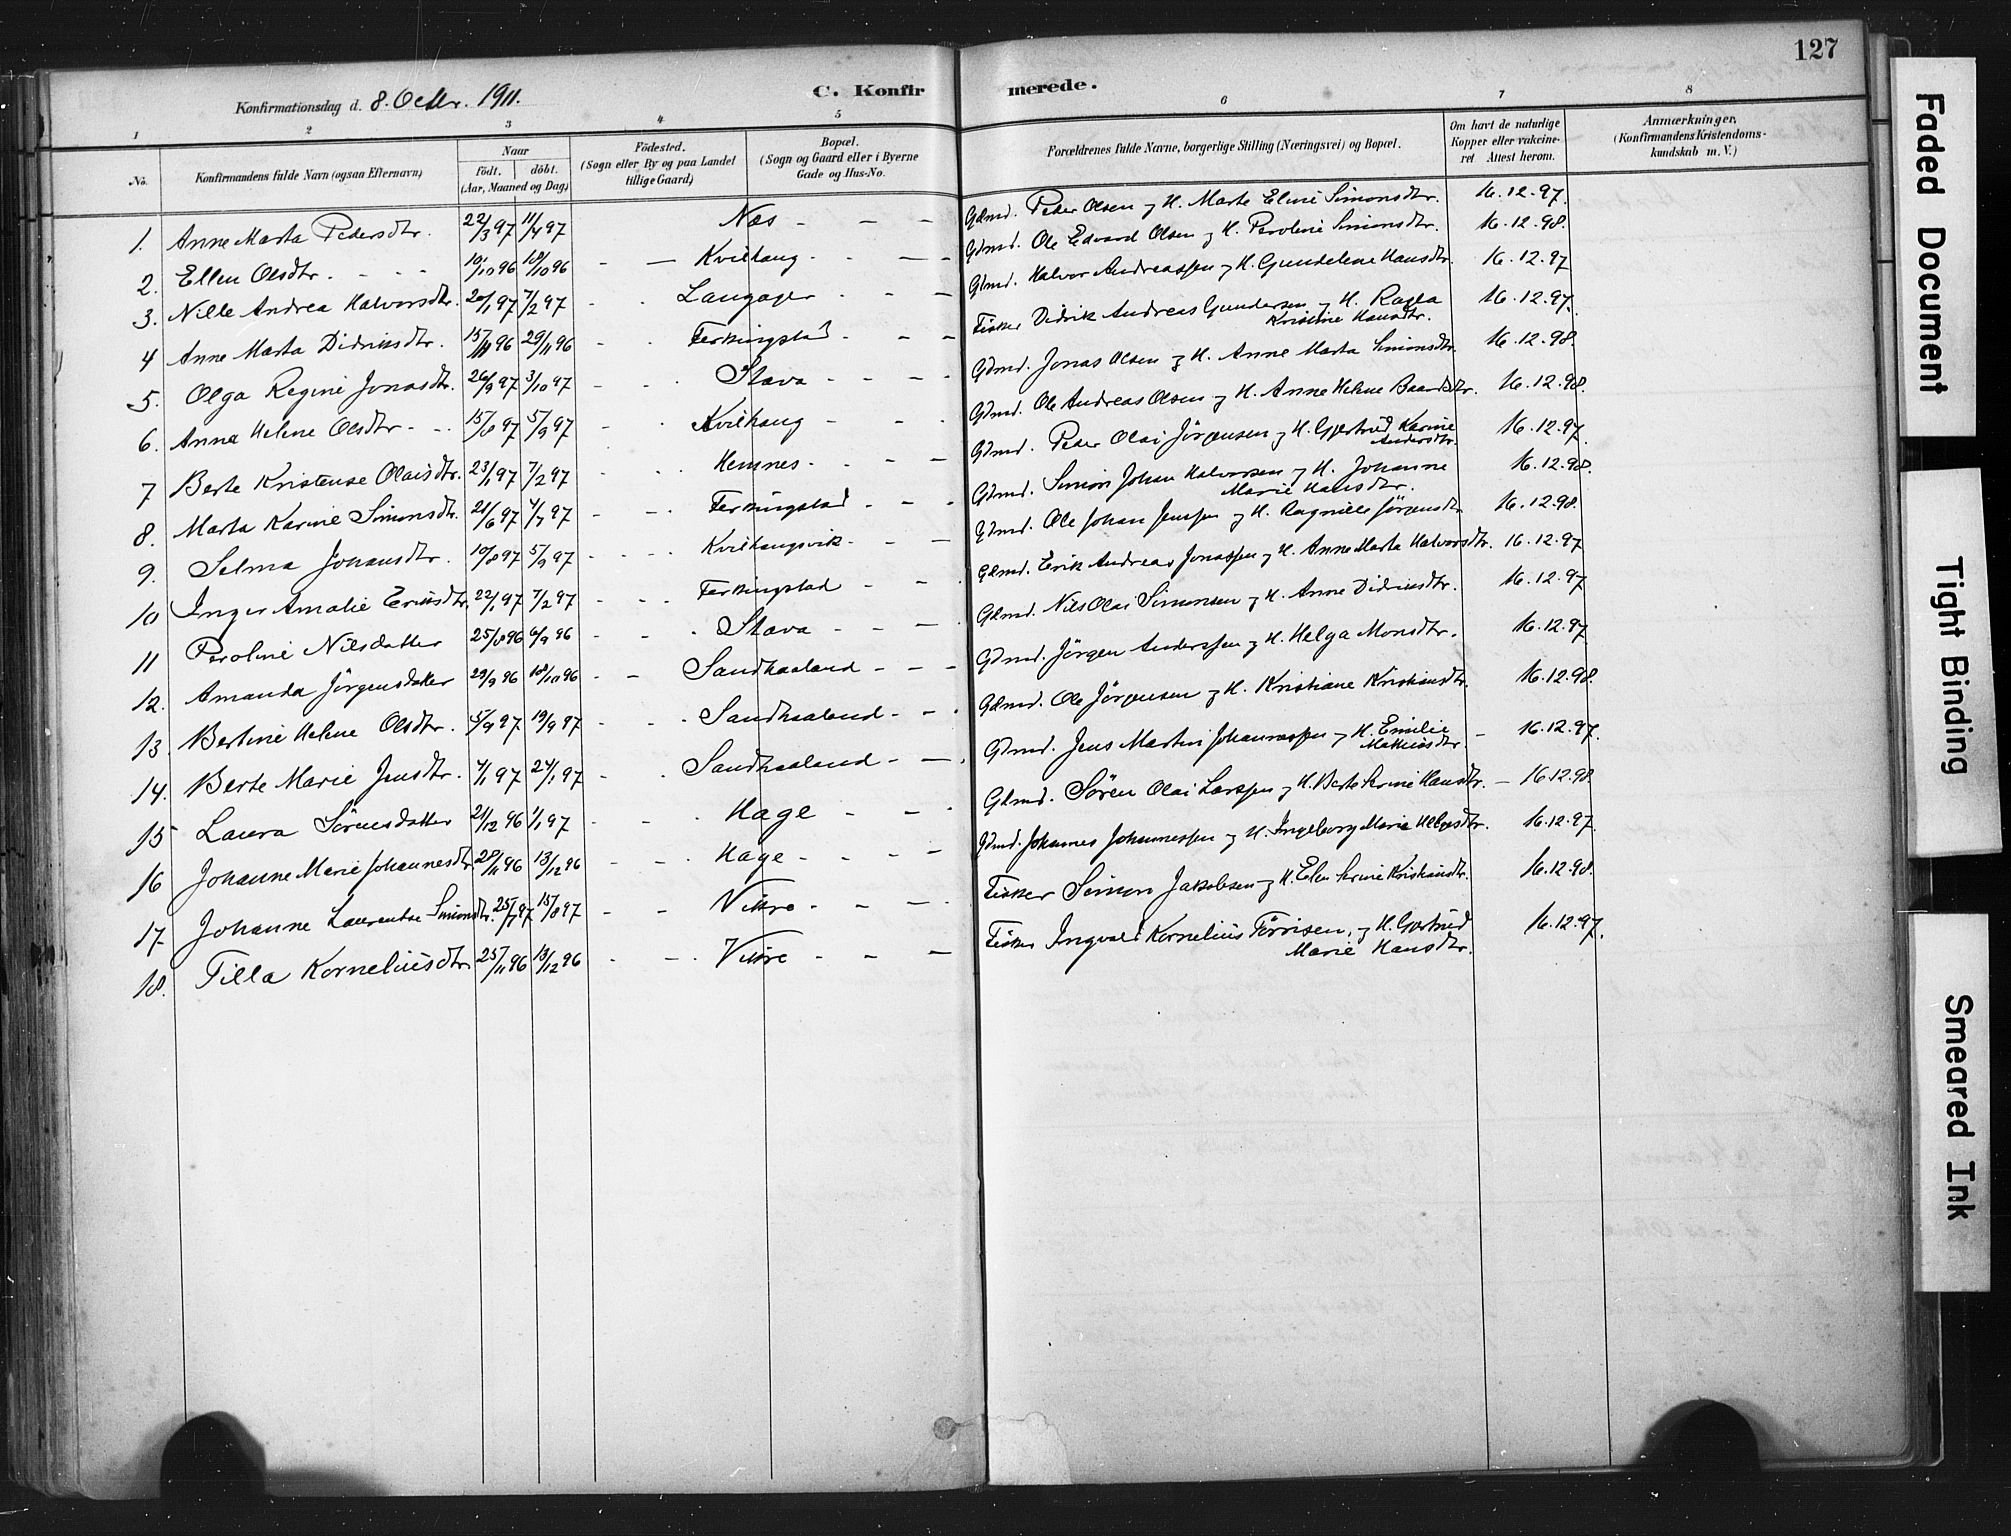 127
Konfirmationsdag d. 8. Octbr. 1911.
C. Konfirmerede.
1 2 3 4 5 6 7 8
No.
Konfirmandens fulde Navn (ogsaa Efternavn)
Naar
födt. döbt.
(Aar, Maaned og Dag)
Födested.
(Sogn eller By og paa Landet
tillige Gaard)
Bopæl.
(Sogn og Gaard eller i Byerne
Gade og Hus-No.
Forældrenes fulde Navne, borgerlige Stilling (Næringsvei) og Bopæl.
Om havt de naturlige
Kopper eller vakcine-
ret Attest herom.
Anmærkninger,
(Konfirmandens Kristendoms-
kundskab m. V.)
1. Anne Marta Pedersdtr. 22/3 97 11/4 97 Næs - - - Gdmd. Peder Olsen og H. Marte Eline Simonsdtr. 16.12.97.
2. Ellen Olsdtr. - - - 10/10 96 18/10 96 - - Kvilhaug - - - Gdmd. Ole Edvard Olsen og H. Peroline Simonsdtr. 16.12.98.
3. Nille Andrea Halvorsdtr. 20/1 97 7/2 97 - - Langager - - - Gdmd. Halvor Andreassen og H. Gundelene Hansdtr. 16.12.97
4 Anne Marta Didriksdtr. 15/11 96 29/11 96 - - Ferkingstad - - Fisker Didrik Andreas Gundersen og H. Ragla
Kristine Hansdtr. 16.12.97.
5. Olga Regine Jonasdtr. 26/9 97 3/10 97 - - Stava - - - - Gdmd. Jonas Olsen og H. Anne Marta Simonsdtr. 16.12.98.
6. Anna Helene Olsdtr - - 15/8 97 5/9 97 - - Kvilhaug - - - Gdmd. Ole Andreas Olsen og H. Anne Helene Baardsdtr. 16.12.98.
7 Berte Kristense Olaisdtr. 23/1 97 7/2 97 - - - Hemnes - - - - Gdmd. Peder Olai Jörgensen og H. Gjertrud Karine
Andersdtr. 16.12.97.
8. Marta Karine Simonsdtr. 21/6 97 4/7 97 - - - Ferkingstad - - Gdmd. Simon Johan Halvorsen og H. Johanne
Marie Hansdtr. 16.12.98.
9. Selma Johansdtr. 10/8 97 5/9 97 - - - - Kvilhaugsvik - - - Gdmd. Ole Johan Jenssen og H. Ragnille Jörgensdtr 16.12.98.
10 Inger Amalie Eriksdtr. 22/1 97 7/2 97 - - - Ferkingstad - - - Gdmd. Erik Andreas Jonassen og H. Anne Marta Halvorsdtr. 16.12.97
11 Peroline Nilsdatter 25/8 96 6/9 96 - - - Stava - - - Gdmd. Nils Olai Simonsen og H. Anne Didriksdtr. 16.12.97
12. Amanda Jörgensdatter 29/9 96 18/10 96 - - Sandhaaland - - - Gdmd. Jörgen Anderssen og H. Helga Monsdtr. 16.12.97
13. Bertine Helene Olsdtr. 5/9 97 19/9 97 - - - Sandhaaland - - - Gdmd. Ole Jörgensen og H. Kristiane Kristiansdtr. 16.12.98.
14. Berte Marie Jensdtr. 4/1 97 24/1 97 - - Sandhaaland - - - Gdmd. Jens Martin Johannessen og H. Emilie
Mathiasdtr - 16.12.97.
15 Laura Sörensdatter 21/12 96 1/1 97 - - - Hage - - - Gdmd. Sören Olai Larssen og H. Berte Serine Hansdtr. - 16.12.98
16 Johanne Marie Johannesdtr. 28/11 96 13/12 96 - - - Hage - - - - Gdmd. Johannes Johannessen og H. Ingeborg Marie Helgesdtr. 16.12.97.
17. Johanne Laurentse Simonsdtr. 25/7 97 15/8 97 - - Vikre - - - - Fisker Simon Jakobsen og H. Elen Serine Kristiansdtr. 16.12.98.
18. Tilla Korneliusdtr. 25/11 96 13/12 96 - - - Vikre - - - Fisker Ingvald Kornelius Törrisen, og H. Gjertrud
Marie Hansdtr. 16.12.97.
Faded Document
Tight Binding
Smeared Ink